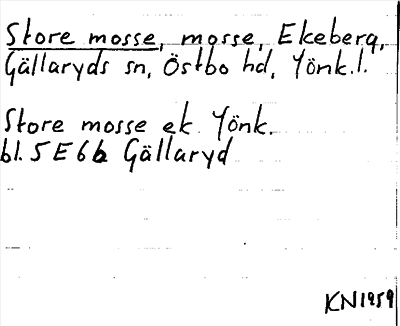 Store mosse, mosse, Ekeberg,
Gällaryds sn, Östbo hd, Jönk.l.
Store mosse ek. Jönk.
bl. 5E6b Gällaryd
KN1959